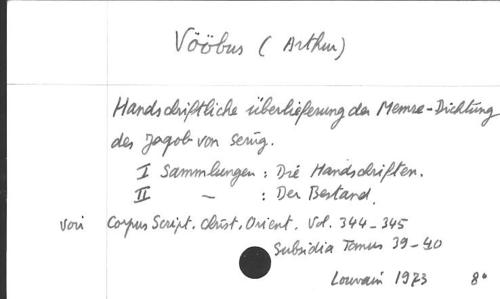 Vööbus (Arthur)
Handschriftliche überlieferung der Memre-Dichtung
des Jaqob von Serūg.
I Sammlungen : Die Handschriften.
II — : Der Bestand.
voir Corpus Script. Christ. Orient. Vol. 344-345
Subsidia Tomus 39-40
Louvain 1973 8°